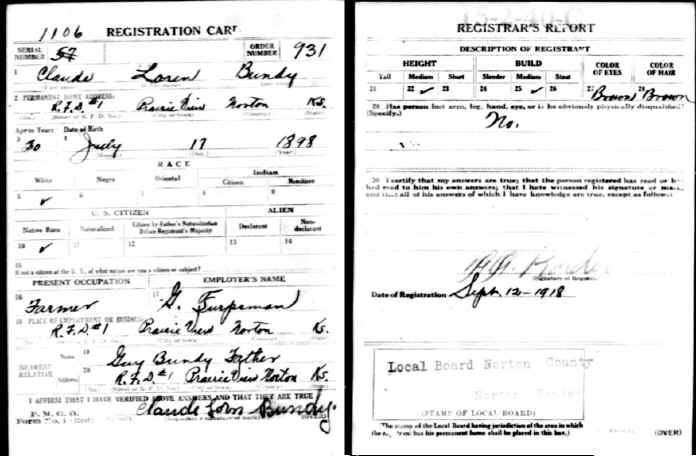 1106 REGISTRATION CARD
SERIAL NUMBER 57 ORDER NUMBER 931
1 Claude Loren Bundy
2 PERMANENT HOME ADDRESS:
R.F.D. #1 Prairie View Norton Ks.
Age in Years Date of Birth
3 20 July 17 1898
RACE
White Negro Oriental Indian
Citizen Noncitizen
5 ✓ 6 7 8 9
U. S. CITIZEN ALIEN
Native Born Naturalized Citizen by Father's Naturalization Before Registrant's Majority Declarant Non-declarant
10 ✓ 11 12 13 14
15
If not a citizen of the U. S., of what nation are you a citizen or subject?
PRESENT OCCUPATION EMPLOYER'S NAME
16 Farmer 17 G.
18 PLACE OF EMPLOYMENT OR BUSINESS:
R.F.D. #1 Prairie View Norton Ks.
NEAREST RELATIVE
Name 19 Guy Bundy Father
Address 20 R.F.D. #1 Prairie View Norton Ks.
I AFFIRM THAT I HAVE VERIFIED ABOVE ANSWERS AND THAT THEY ARE TRUE
P. M. G. O.
Form No. 1 Claude Loren Bundy.
REGISTRAR'S REPORT
DESCRIPTION OF REGISTRANT
HEIGHT BUILD COLOR OF EYES COLOR OF HAIR
Tall Medium Short Slender Medium Stout
21 22 ✓ 23 24 25 ✓ 26 27 Brown 28 Brown
29 Has person lost arm, leg, hand, eye, or is he obviously physically disqualified?
(Specify.)
No.
30 I certify that my answers are true; that the person registered has read or has
had read to him his own answers; that I have witnessed his signature or mark,
and that all of his answers of which I have knowledge are true, except as follows:
Date of Registration Sept. 12-1918
Local Board Norton County
Norton
(STAMP OF LOCAL BOARD)
The stamp of the Local Board having jurisdiction of the area in which
the registrant has his permanent home shall be placed in this box.)
(OVER)